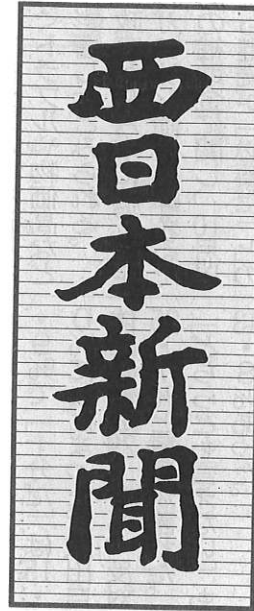 西日本新聞